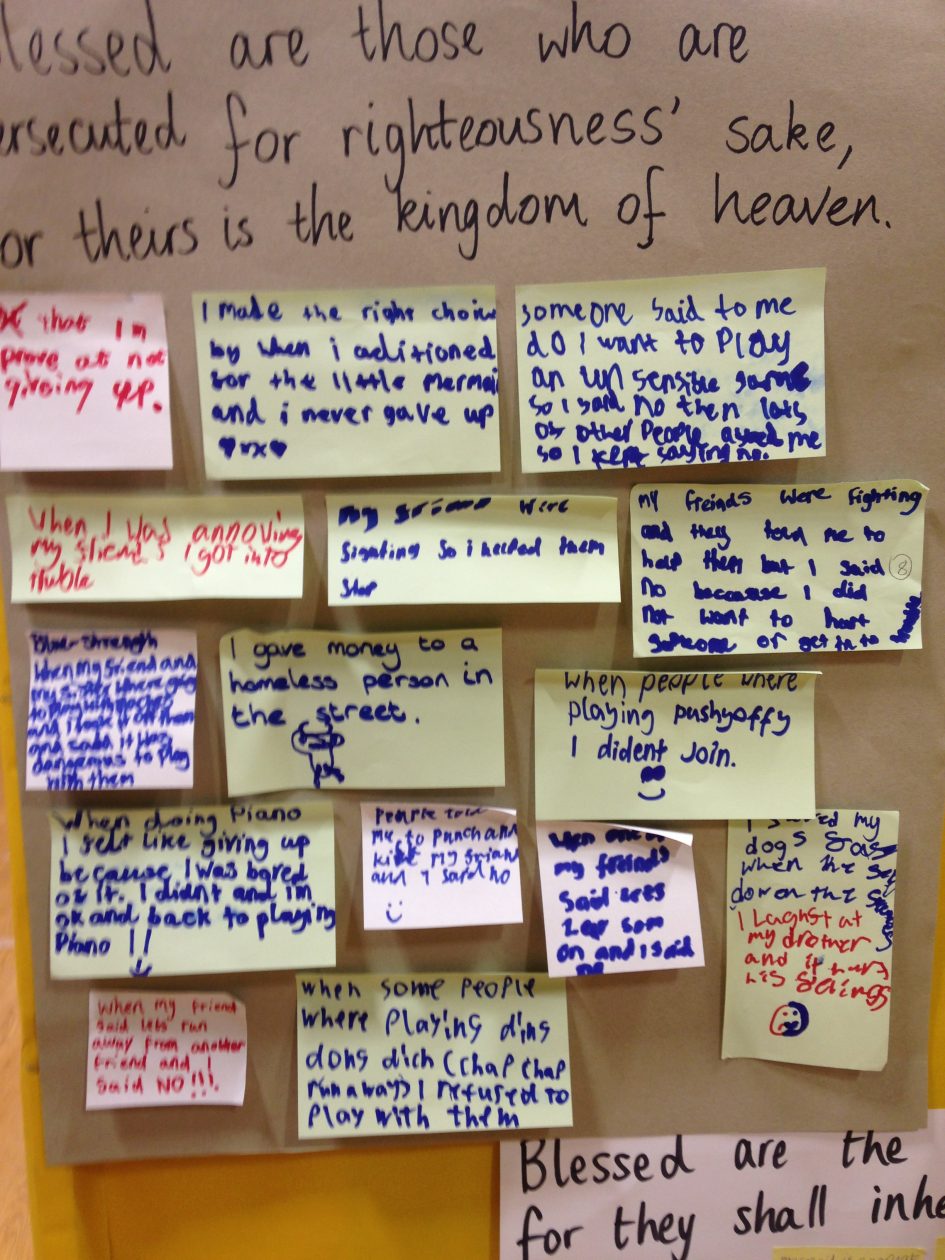 lessed are those who are
ersecuted for righteousness' sake,
or theirs is the kingdom of heaven.
that Im
prove at not
giving up.
I made the right choice
by when i aditioned
for the little mermai
and i never gave up
someone said to me
do I want to play
an un sensible game
so I said no then lots
of other people asked me
so I kept saying no.
When I was annoying
my friends I got into
truble
my friends were
fighting so i helped them
stop
my freinds were fighting
and they told me to
help them but I said 8
No beccause I did
Not want to hurt
someone or get in to
Blue-strength
When my friend and
my sister where
and I took it off them
and said it was
dangerus to play
with them
I gave money to a
homeless person in
the street.
when people where
playing pushyoffy
I dident join.
When doing Piano
I felt like giving up
because I was bored
of it. I didnt and im
ok and back to playing
Piano !!
People told
me to punch and
kick my friend
and I said no
When one of
my friends
said
on and I said
no
my
dogs
when he
down the
I laghst at
my brother
and it hurs
his
when my friend
said lets run
away from another
friend and I
said NO!!!.
when some people
where playing ding
dong dich (chap chap
runaway) I refused to
play with them
Blessed are the
for they shall inhe